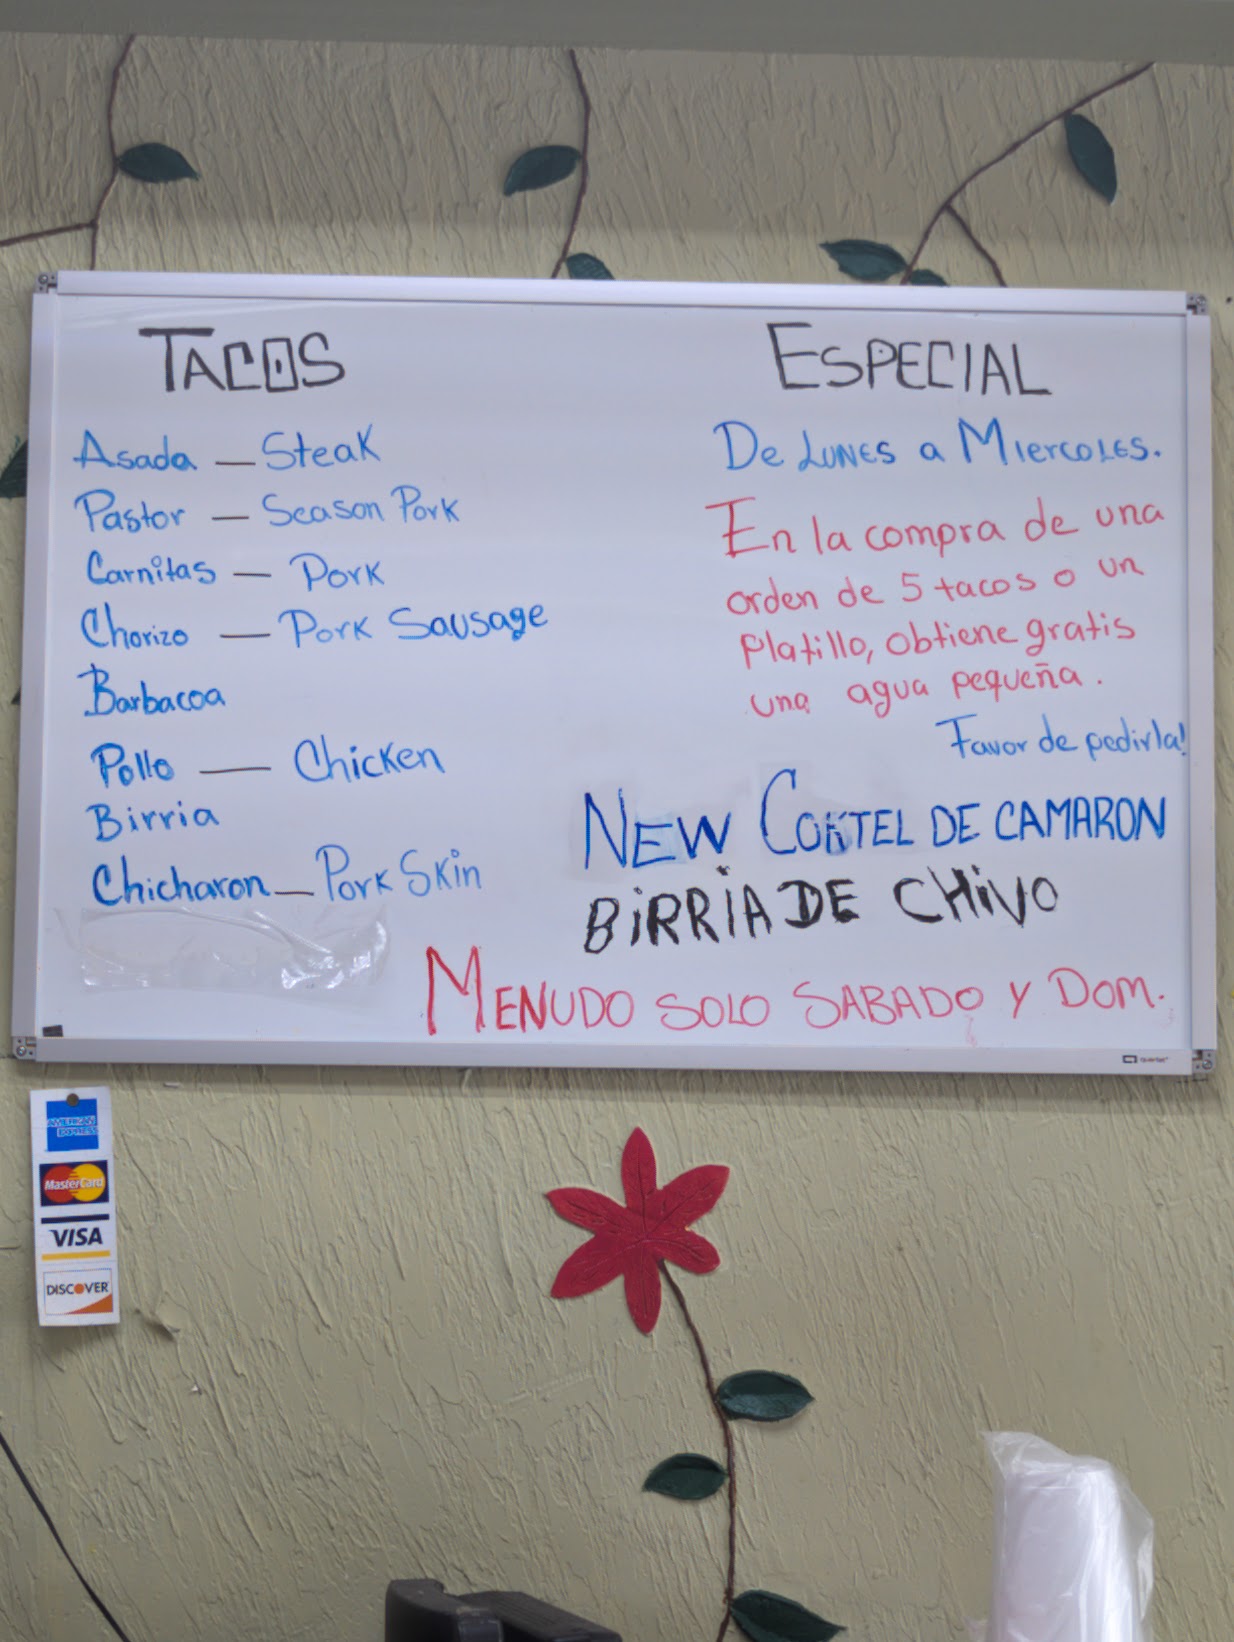 TACOS
Asada — Steak
Pastor — Season Pork
Carnitas — Pork
Chorizo — Pork Sausage
Barbacoa
Pollo — Chicken
Birria
Chicharon — Pork Skin
ESPECIAL
De LUNES a MIERCOLES.
En la compra de una
orden de 5 tacos o un
platillo, obtiene gratis
una agua pequeña.
Favor de pedirla!
NEW COKTEL DE CAMARON
BIRRIA DE CHIVO
MENUDO SOLO SABADO Y DOM.
Quartet
AMERICAN
EXPRESS
MasterCard
VISA
DISCOVER